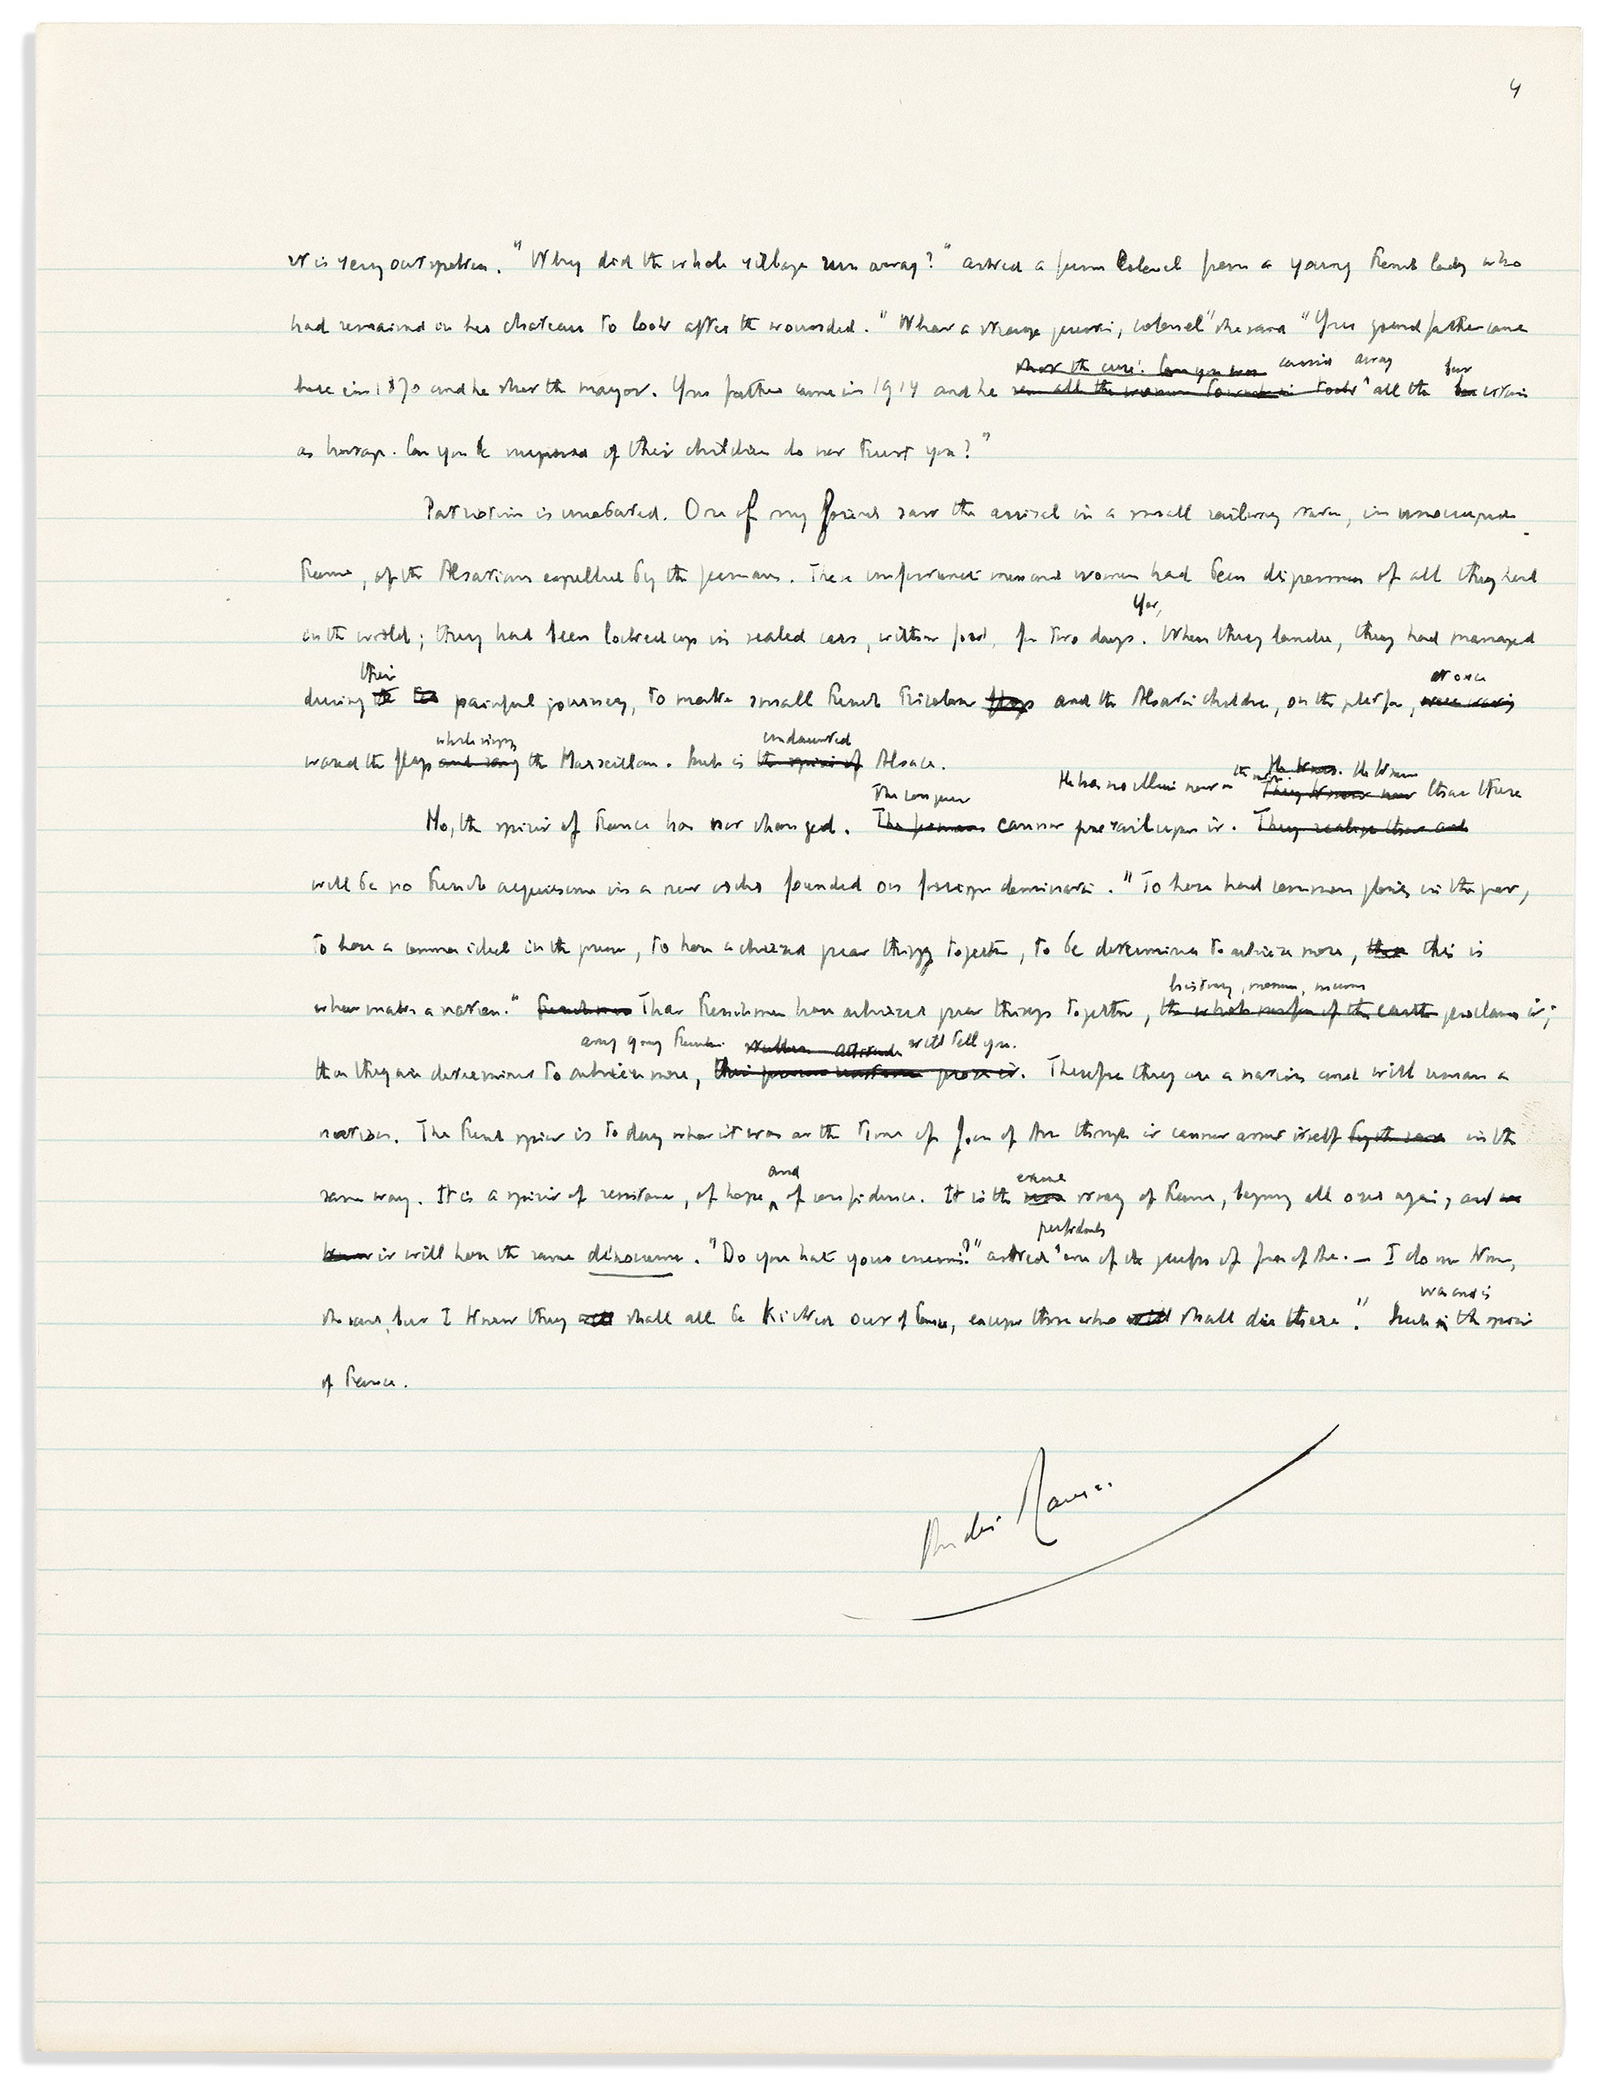 4
it is very outspoken. "Why did the whole village run away?" asked a german Colonel from a young French lady who
had remained in her chateau to look after the wounded. "What a strange question, colonel" she said "Your grandfather came
shot the curé. Can you won carried away
here in 1870 and he shot the mayor. Your father came in 1914 and he all the women all the
as hostages. Can you be surprised if their children do not trust you?"
Patriotism is unabated. One of my friends saw the arrival in a small railway station, in unoccupied
France, of the Alsatians expelled by the germans. These unfortunate men and women had been dispossessed of all they had
Yet,
in the world; they had been locked up in sealed cars, without food, for two days. When they landed, they had managed
their at once
during the painful journey, to make small French tricolour flags and the Alsatian children, on the platform, were waving
while singing undaunted
waved the flags and sang the Marseillaise. Such is the spirit of Alsace.
The conqueror He has no illusions now on the matter. He knows. He knows
They know now that there
No, the spirit of France has not changed. The germans cannot prevail upon it. They realize that and
will be no French acquiescence in a new order founded on foreign domination. "To have had common glories in the past,
to have a common ideal in the present, to have achieved great things together, to be determined to achieve more, that this is
history, museums
what makes a nation." Frenchmen That Frenchmen have achieved great things together, the whole surface of the earth proclaims it;
any young Frenchman attitude will tell you.
that they are determined to achieve more, their present resistance proves it. Therefore they are a nation and will remain a
nation. The French spirit is to day what it was at the time of Joan of Arc though it cannot assert itself by the same in the
and same
same way. It is a spirit of resistance, of hope, of confidence. It is the story of France, beginning all over again, and
perfidiously
it will have the same dénouement. "Do you hate your enemies?" asked one of the judges of Joan of Arc. — I do not know,
was and is
she said, but I know they will shall all be kicked out of France, except those who will shall die there." Such is the spirit
of France.
André Maurois